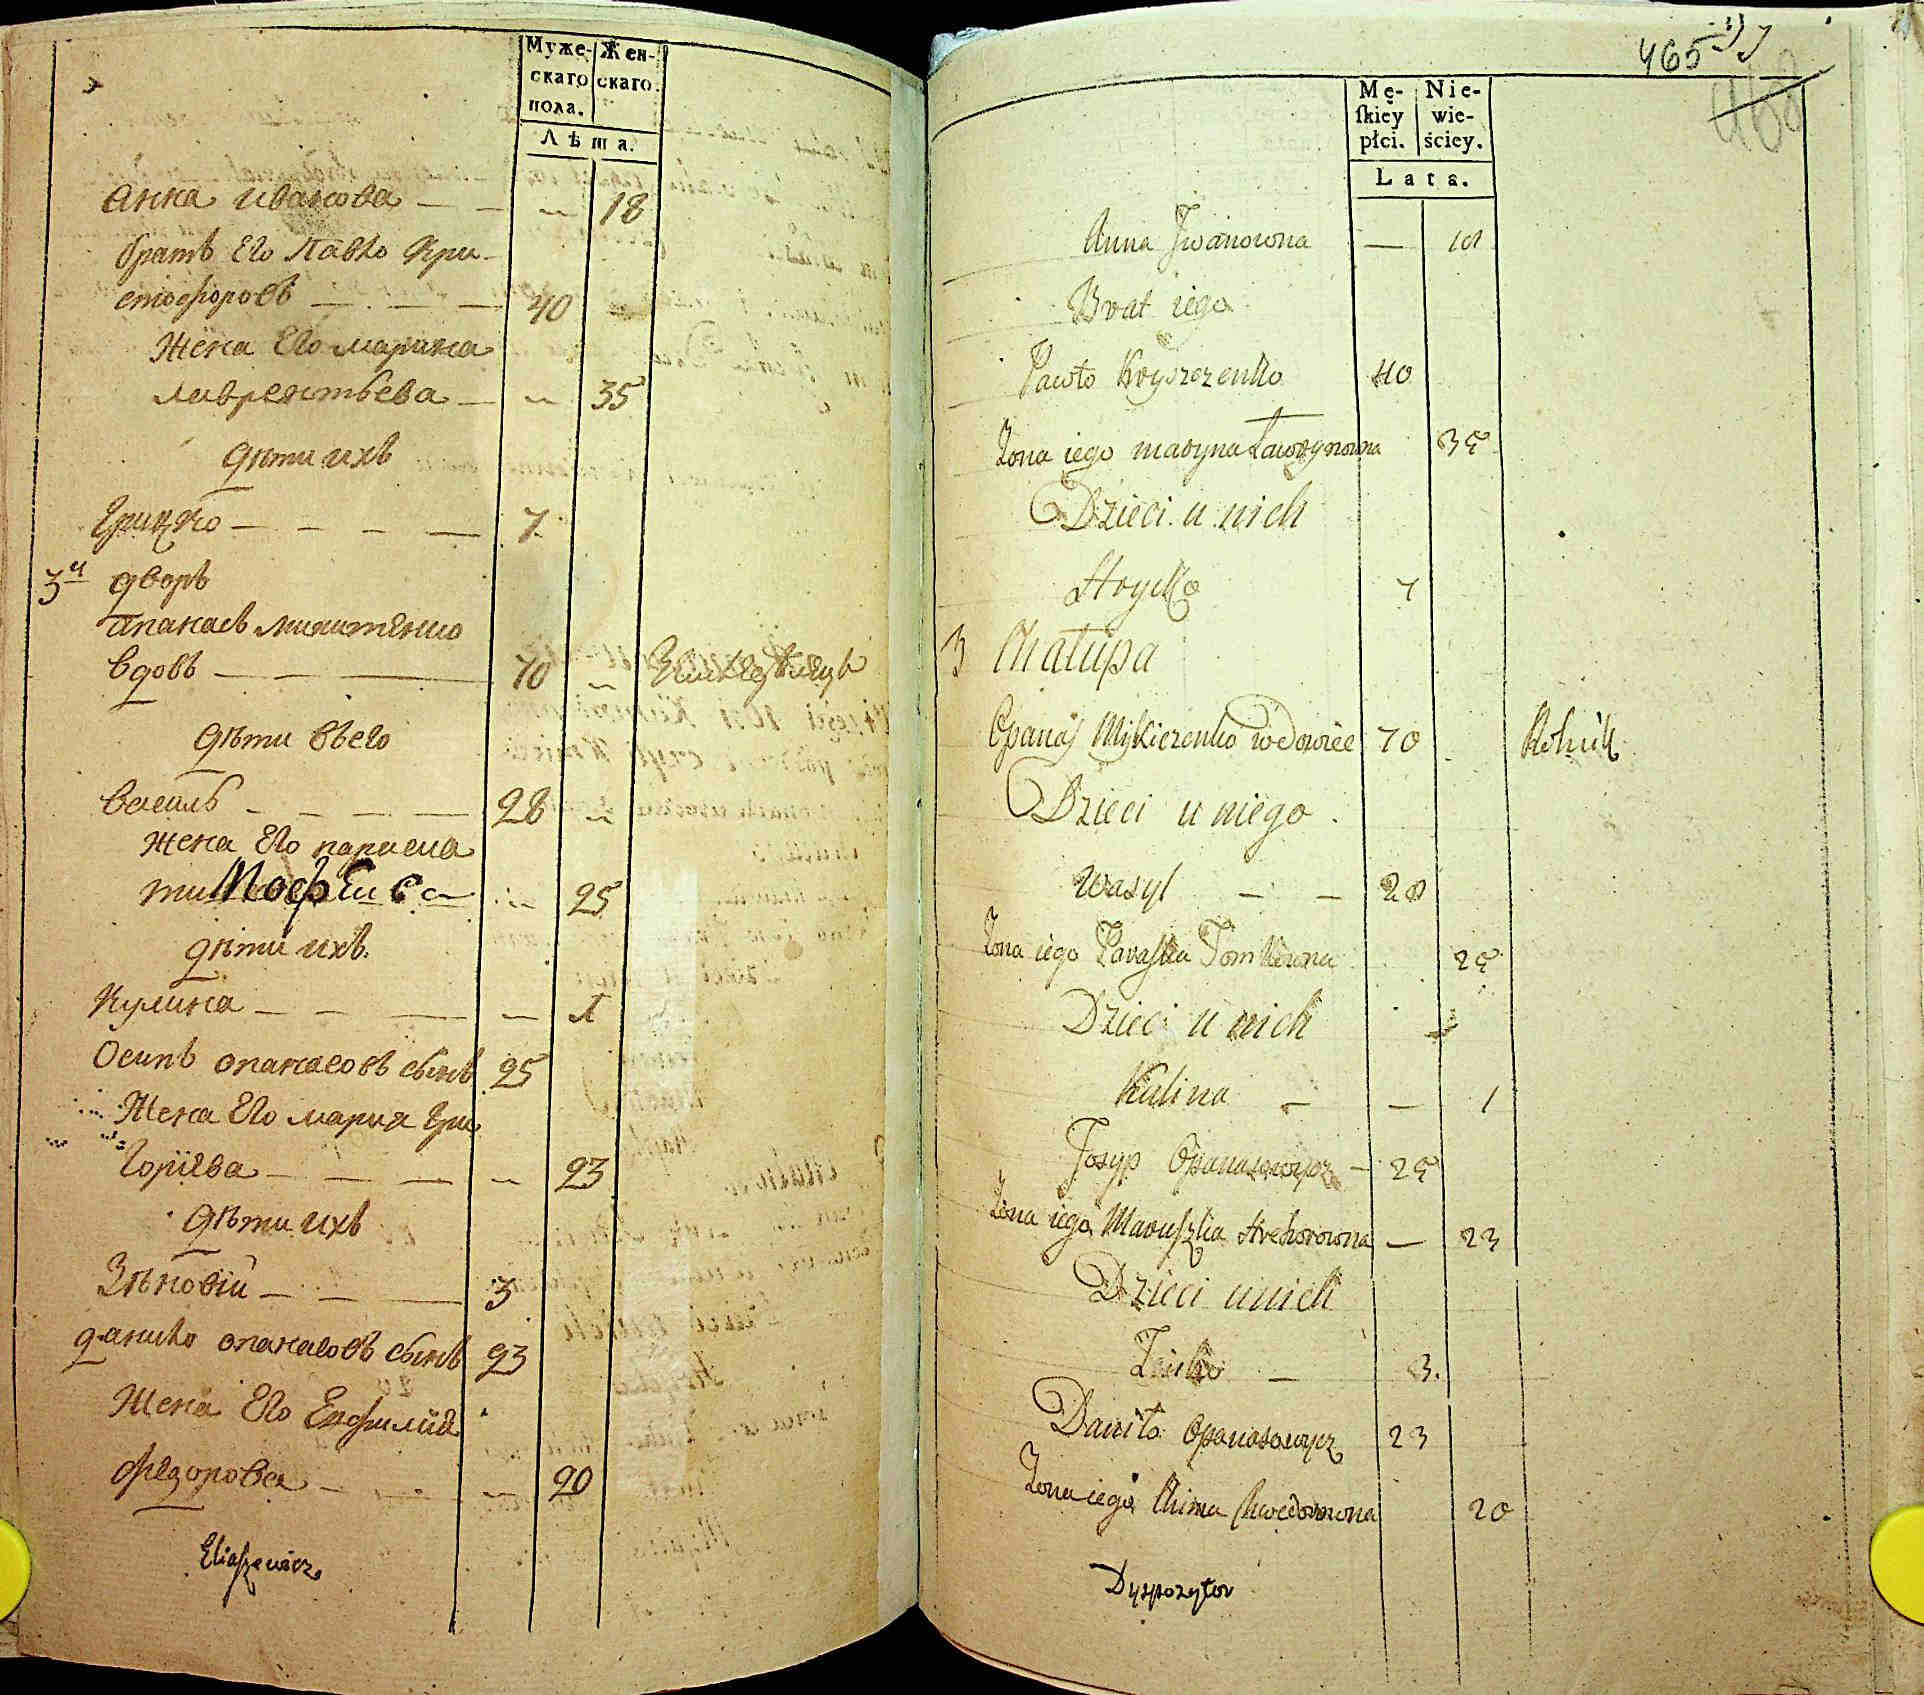 Муже- Жен-
скаго скаго
пола.
Лѣта.
Анна Иванова — — „ 18
братъ Его Павло Хри-
стофоровъ — — — 40
Жена Его Марина
Лаврентьева — „ 35
Дѣти ихъ
Грицко — — — — 7
3й дворъ
Апанасъ Микитенко
вдовъ — — — 70 „
Дѣти Въего
Василь — — — — 28 „
Жена Его параска
25
Дѣти ихъ
Кулина — — — — 1
Осипъ опанасовъ сынъ 25
Жена Его мария Гри
Горіева — — — „ 23
Дѣти ихъ
Зѣновій — — — 3
данило опанасовъ сынъ 23
Жена Его Евфимия
Федорова — — — 20
Eliaszewicz
465
468
Mę- Nie-
ſkiey wie-
płci. ściey.
Lata.
Anna Jwanowna — 18
Brat iego
Pawło Kryszczenko 40
Zona iego maryna Ławrynowna 35
Dzieci u nich
Hrycko 7
3 Chałupa
Opanas Mykiczenko wdowiec 70 Rolnik
Dzieci u niego
Wasyl — — 28
Zona iego Paraska 25
Dzieci u nich
Kulina — — 1
Josyp Opanasowycz — 25
Zona iego Maruszka Hrehorowna — 23
Dzieci u nich
Zinko — 3.
Daniło Opanasowycz 23
Zona iego Chima Chwedorowna 20
Dyspozytor